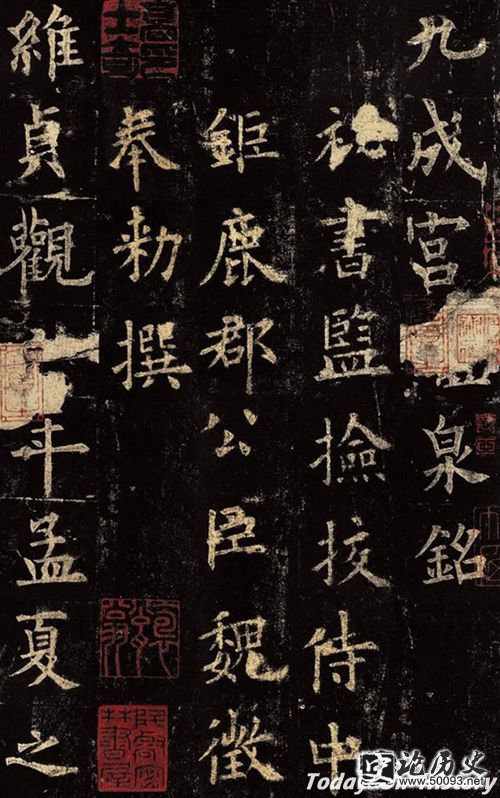 九成宮泉銘
祕書監撿挍侍中
鉅鹿郡公臣魏徵
奉勑撰
維貞觀年孟夏之
论历史
www.50093.net
Today